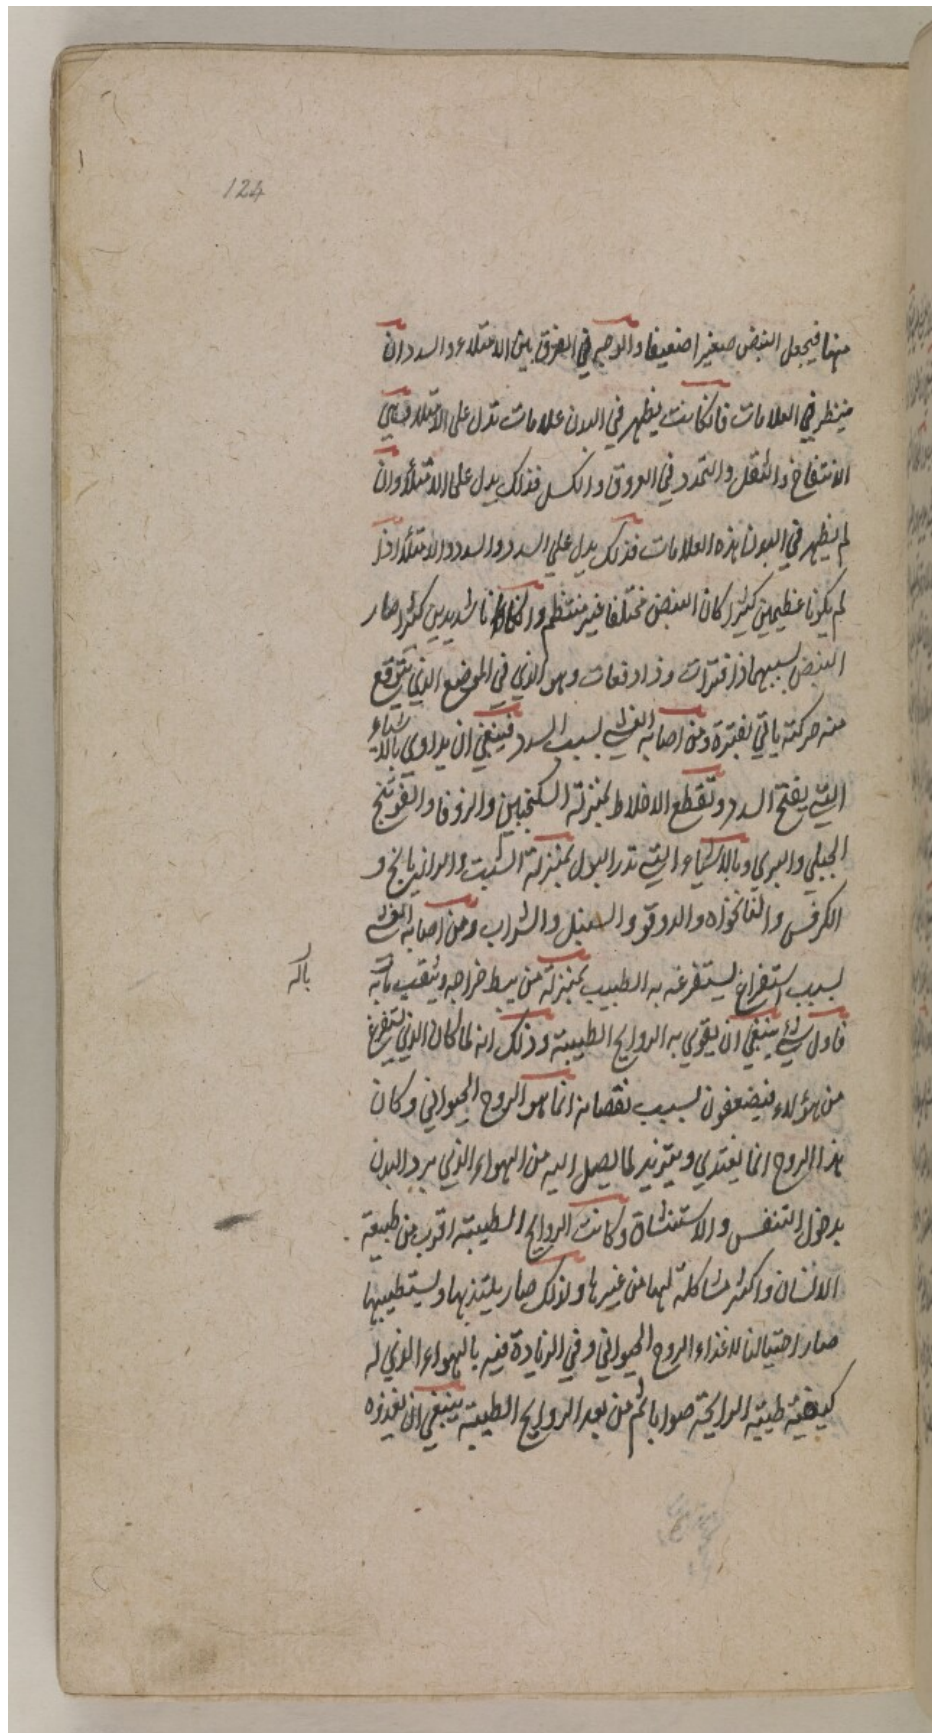 124
منها فيجعل النبض صغيرا ضعيفا والوجه في الفرق بين الامتلاء والسدد ان
ينظر في العلامات فان كانت يظهر في البدن علامات تدل على الامتلاء وهي
الانتفاخ والثقل والتمدد في العروق والكسل فذلك يدل على الامتلأ وان
لم يظهر في البدن هذه العلامات فذلك يدل علي السدد والسدد والامتلأ اذا
لم يكونا عظيمين كثيرا كان النبض مختلفا غير منتظم وان كانا شديدين كثيرا صار
النبض بسببهما ذا فترات وذا دفعات وهو الذي في الموضع الذي يتوقع
منه حركته ياتي بفترة ومن اصابه الغشي بسبب السدد فينبغي ان يداوي بالاشياء
التي يفتح السدد وتقطع الاخلاط بمنزلة السكنجبين والزوفا والفوتنج
الجبلي والبري وبالاشياء التي تدر البول بمنزلة الشبت والرازيانج و
الكرفس والنانخواه والدوقو والسنبل والشراب ومن اصابه الغشي
بسبب استفراغ يستفرغه به الطبيب بمنزلة من يبط خراجه ويثقب بآلة
بآلة
فاول شيء ينبغي ان يقوي به الروايح الطيبة وذلك انه لما كان الذي يستفرغ
من هؤلاء فيضعفون بسبب نقصانه انما هو الروح الحيواني وكان
هذا الروح انما يغتذي ويتزيد لما يصل اليه من الهواء الذي يرد البدن
بدخول التنفس والاستنشاق وكانت الروايح الطيبة اقرب من طبيعة
الانسان واكثر مشاكلة لها من غيرها ولذلك صار يلتذ بها ويستطيبها
صار احتيالنا لاغذاء الروح الحيواني وفي الزيادة فيه بالهواء الذي له
كيفية طيبة الرايحة صوابا ثم من بعد الروايح الطيبة ينبغي ان نغذوه